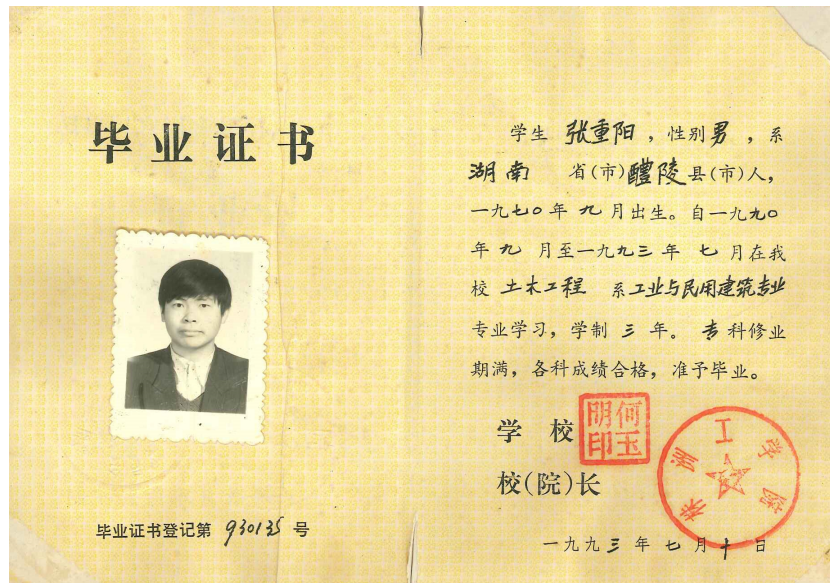 毕业证书
毕业证书登记第 930135 号
学生 张重阳，性别男，系
湖南 省(市)醴陵县(市)人，
一九七〇年九月出生。自一九九〇
年九月至一九九三年七月在我
校 土木工程 系工业与民用建筑专业
专业学习，学制三年。专科修业
期满，各科成绩合格，准予毕业。
学校
校(院)长
何玉明印
株洲工学院
一九九三年七月十日